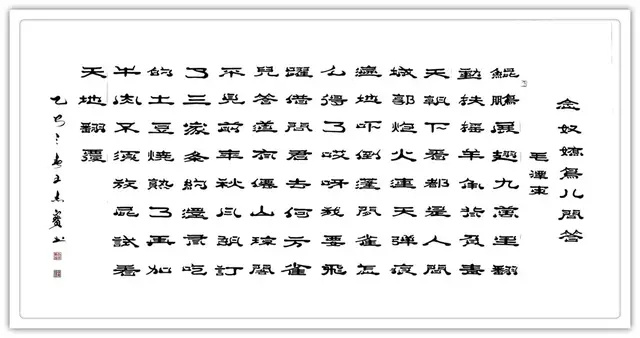 念奴嬌鳥儿問答
毛澤東
鯤鵬展翅九萬里翻
動扶搖羊角背負青
天朝下看都是人間
城郭炮火連天彈痕
遍地吓倒蓬間雀怎
么得了哎呀我要飛
躍借問君去何方雀
兒答道有僊山瓊閣
不見前年秋月朗訂
了三家条約還有吃
的土豆燒熟了再加
牛肉不須放屁試看
天地翻覆